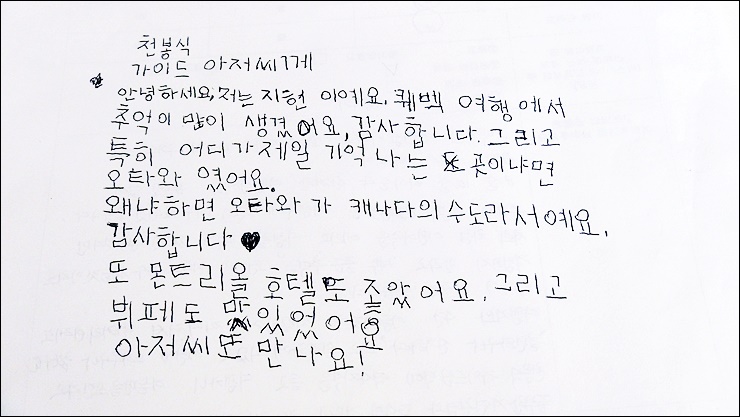 천봉식
가이드 아저씨께
안녕하세요, 저는 지헌 이예요. 퀘벡 여행에서
추억이 많이 생겼어요, 감사합니다. 그리고
특히 어디가 제일 기억나는 곳이냐면
오타와 였어요.
왜냐하면 오타와가 캐나다의 수도라서예요.
감사합니다
또 몬트리올 호텔도 좋았어요. 그리고
뷔페도 맛있었어요
아저씨 또 만나요!